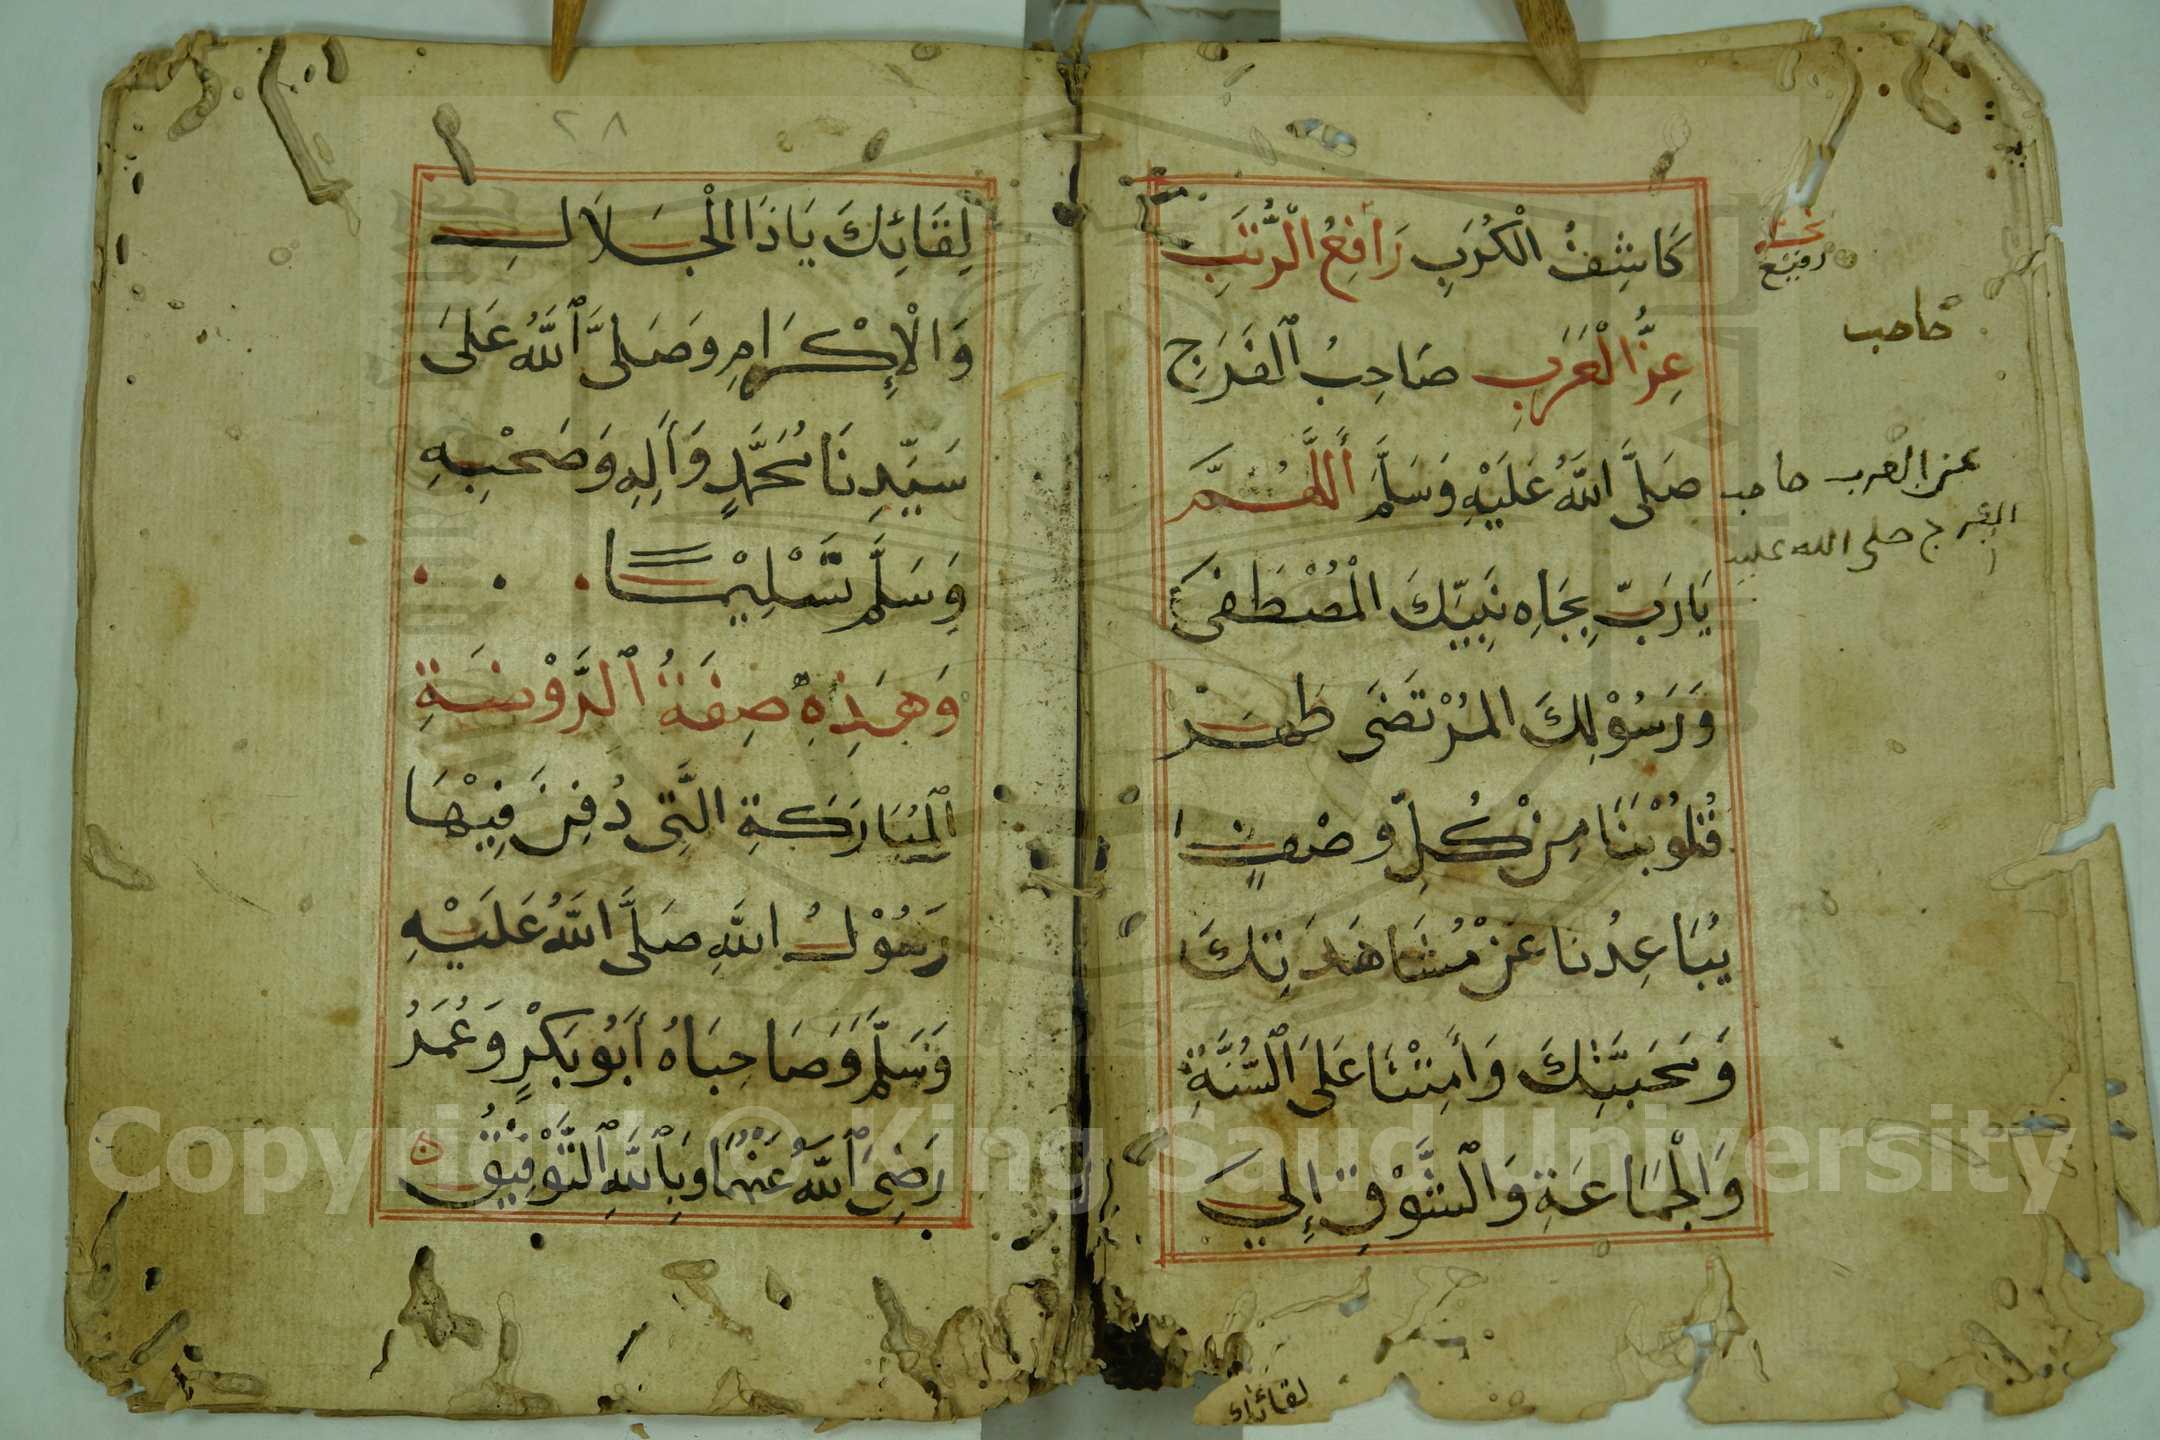 كَاشِفُ الْكُرَبِ رَافِعُ الْرُّتَبِ
عِزُّ الْعَرَبِ صَاحِبُ ٱلفَرَجِ
صَلَّى اللَّهُ عَلَيْهِ وَسَلَّمَ أَللَّهُمَّ
يَارَبِّ بِجَاهِ نَبِيِّكَ الْمُصْطَفَى
وَرَسُوْلِكَ المُرْتَضَى طَهِّرْ
قُلُوْبَنَا مِنْ كُلِّ وَصْفٍ
يُبَاعِدُنا عَنْ مُشَاهَدَتِكَ
وَمَحَبَّتِكَ وَأَمِتْنَا عَلَى ٱلسُّنَّةِ
وَالْجَمَاعَةِ وَالْشَّوْقِ إِلَي
لقائك
رفيع
صاحب
عز العرب صاحب
الفرج صلى الله عليه
٢٨
لِقَائِكَ يَاذَا الْجَلاَلِ
وَالْإِكْرَامِ وَصَلىَّ ٱللَّهُ عَلىَ
سَيِّدِنَا مُحَمَّدٍ وَأَلِهِ وَصَحْبِهِ
وَسَلَّمَ تَسْلِيْمًا
وَهَذِهِ صِفَةُ ٱلرَّوْضَةِ
ٱلمُبَارَكَةِ الَّتِى دُفِنَ فِيْهَا
رَسُوْلُ اللَّهِ صَلَّى اللَّهُ عَلَيْهِ
وَسَلَّمَ وَصَاحِبَاهُ أَبُو بَكْرٍ وَعُمَرُ
رَضِىَ ٱللَّهُ عَنْهُمَا وَبِٱللَّهِ ٱلتَّوْفِيْقُ
Copyright © King Saud University